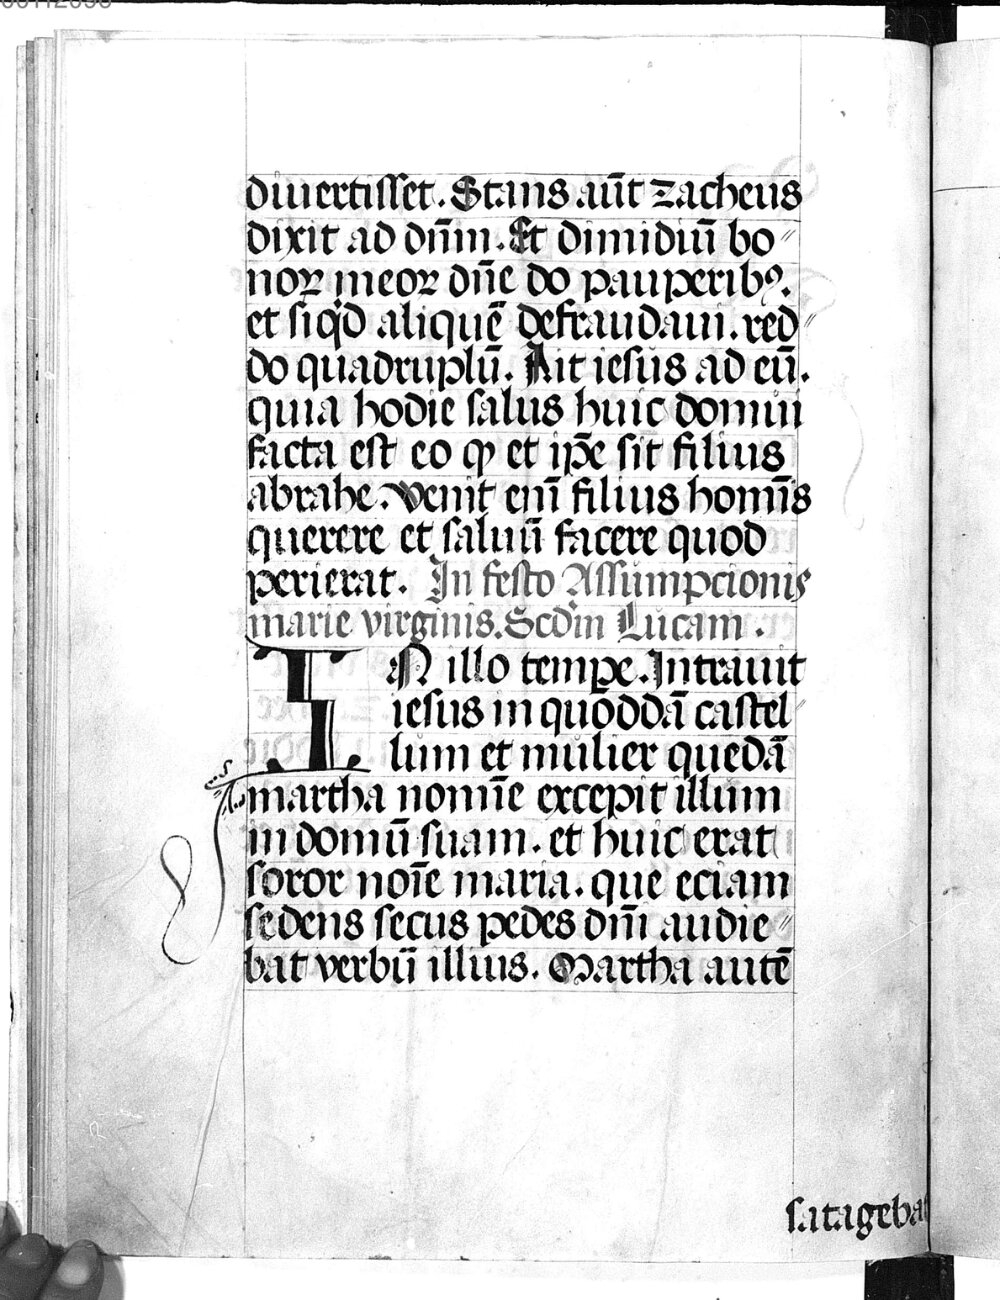 diuertisset. Stans aūt zacheus
dixit ad dn̄m. Et dimidiū bo〃
noꝝ meoꝝ dn̄e do pauperibꝰ.
et siqͩd aliquē defraudaui. red〃
do quadruplū. Ait iesus ad eū.
quia hodie salus huic domui
facta est eo ꝙ et ip̄e sit filius
abrahe. Venit enī filius homīs
querere et saluū facere quod
perierat. In festo Assumpcionis
marie virginis. Scdm̄ Lucam.
IN illo tempe. Intrauit
iesus in quoddā castel〃
lum et mulier quedā
martha nomīe excepit illum
in domū suam. et huic erat
soror noīe maria. que eciam
sedens secus pedes dn̄i audie〃
bat verbū illius. Martha autē
satageba